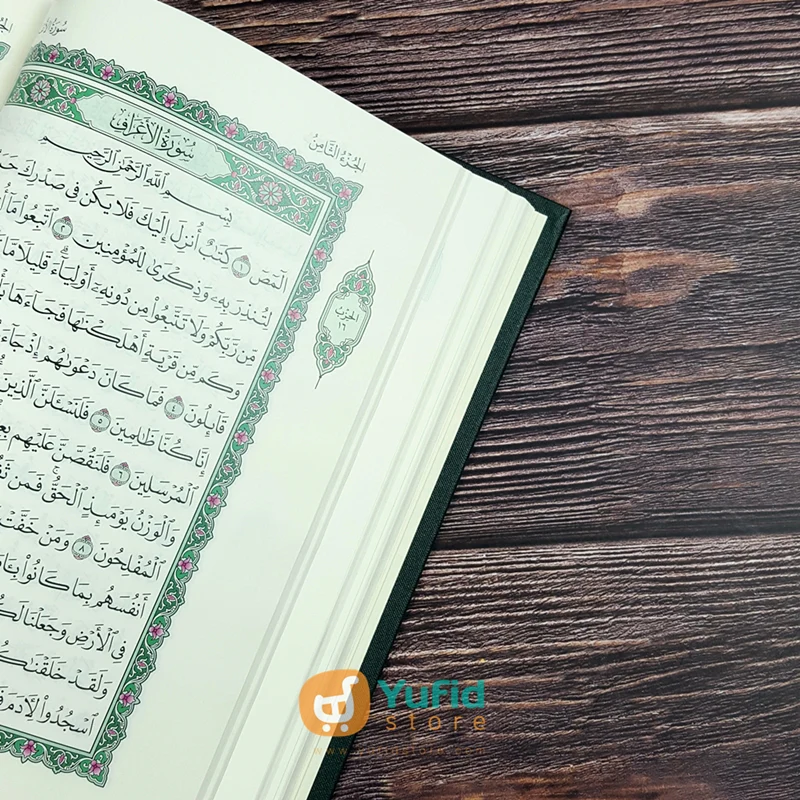 سُورَةُ الأَعْرَافِ
الجُزْءُ الثَّامِنُ
بِسْمِ ٱللَّهِ ٱلرَّحْمَٰنِ ٱلرَّحِيمِ
الٓمٓصٓ ١ كِتَٰبٌ أُنزِلَ إِلَيْكَ فَلَا يَكُن فِى صَدْرِكَ
لِتُنذِرَ بِهِۦ وَذِكْرَىٰ لِلْمُؤْمِنِينَ ٢ ٱتَّبِعُوا۟ مَآ
مِّن رَّبِّكُمْ وَلَا تَتَّبِعُوا۟ مِن دُونِهِۦٓ أَوْلِيَآءَ ۗ قَلِيلًا مَّا
وَكَم مِّن قَرْيَةٍ أَهْلَكْنَٰهَا فَجَآءَهَا
قَآئِلُونَ ٤ فَمَا كَانَ دَعْوَىٰهُمْ إِذْ
إِنَّا كُنَّا ظَٰلِمِينَ ٥ فَلَنَسْـَٔلَنَّ ٱلَّذِينَ
ٱلْمُرْسَلِينَ ٦ فَلَنَقُصَّنَّ عَلَيْهِم
وَٱلْوَزْنُ يَوْمَئِذٍ ٱلْحَقُّ ۚ فَمَن
ٱلْمُفْلِحُونَ ٨ وَمَنْ خَفَّتْ
أَنفُسَهُم بِمَا كَانُوا۟
فِى ٱلْأَرْضِ وَجَعَلْنَا
وَلَقَدْ خَلَقْنَٰكُ
ٱسْجُدُوا۟ لِـَٔادَمَ
الحِزْبُ
١٦
Yufid
store